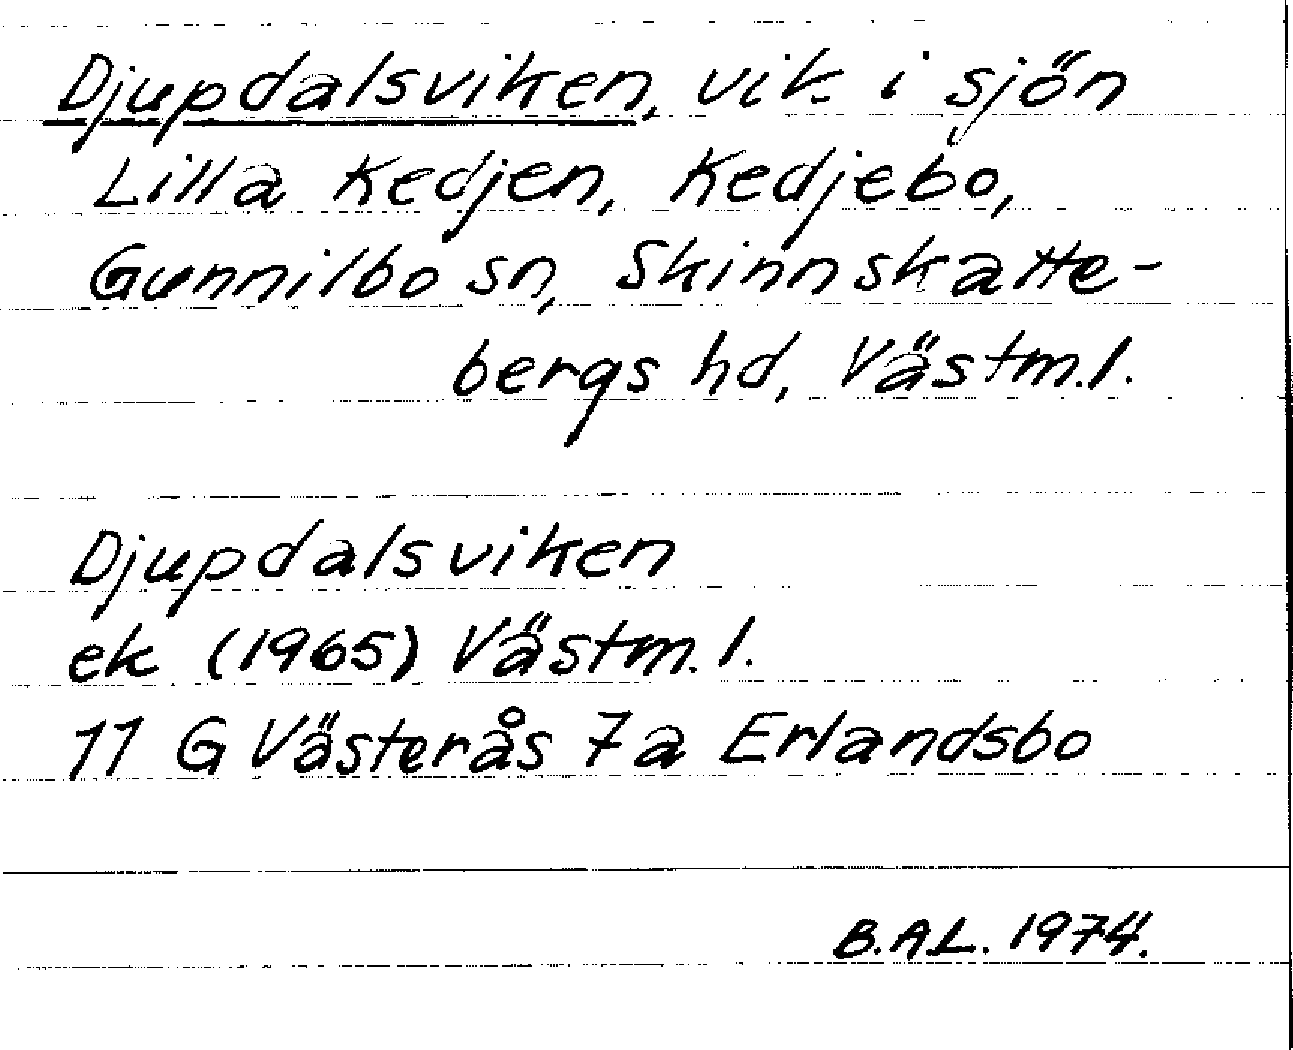 Djupdalsviken, vik i sjön
Lilla Kedjen, Kedjebo,
Gunnilbo sn, Skinnskatte-
bergs hd, Västm.l.
Djupdalsviken
ek (1965) Västm.l.
11 G Västerås 7a Erlandsbo
B.A.L. 1974.